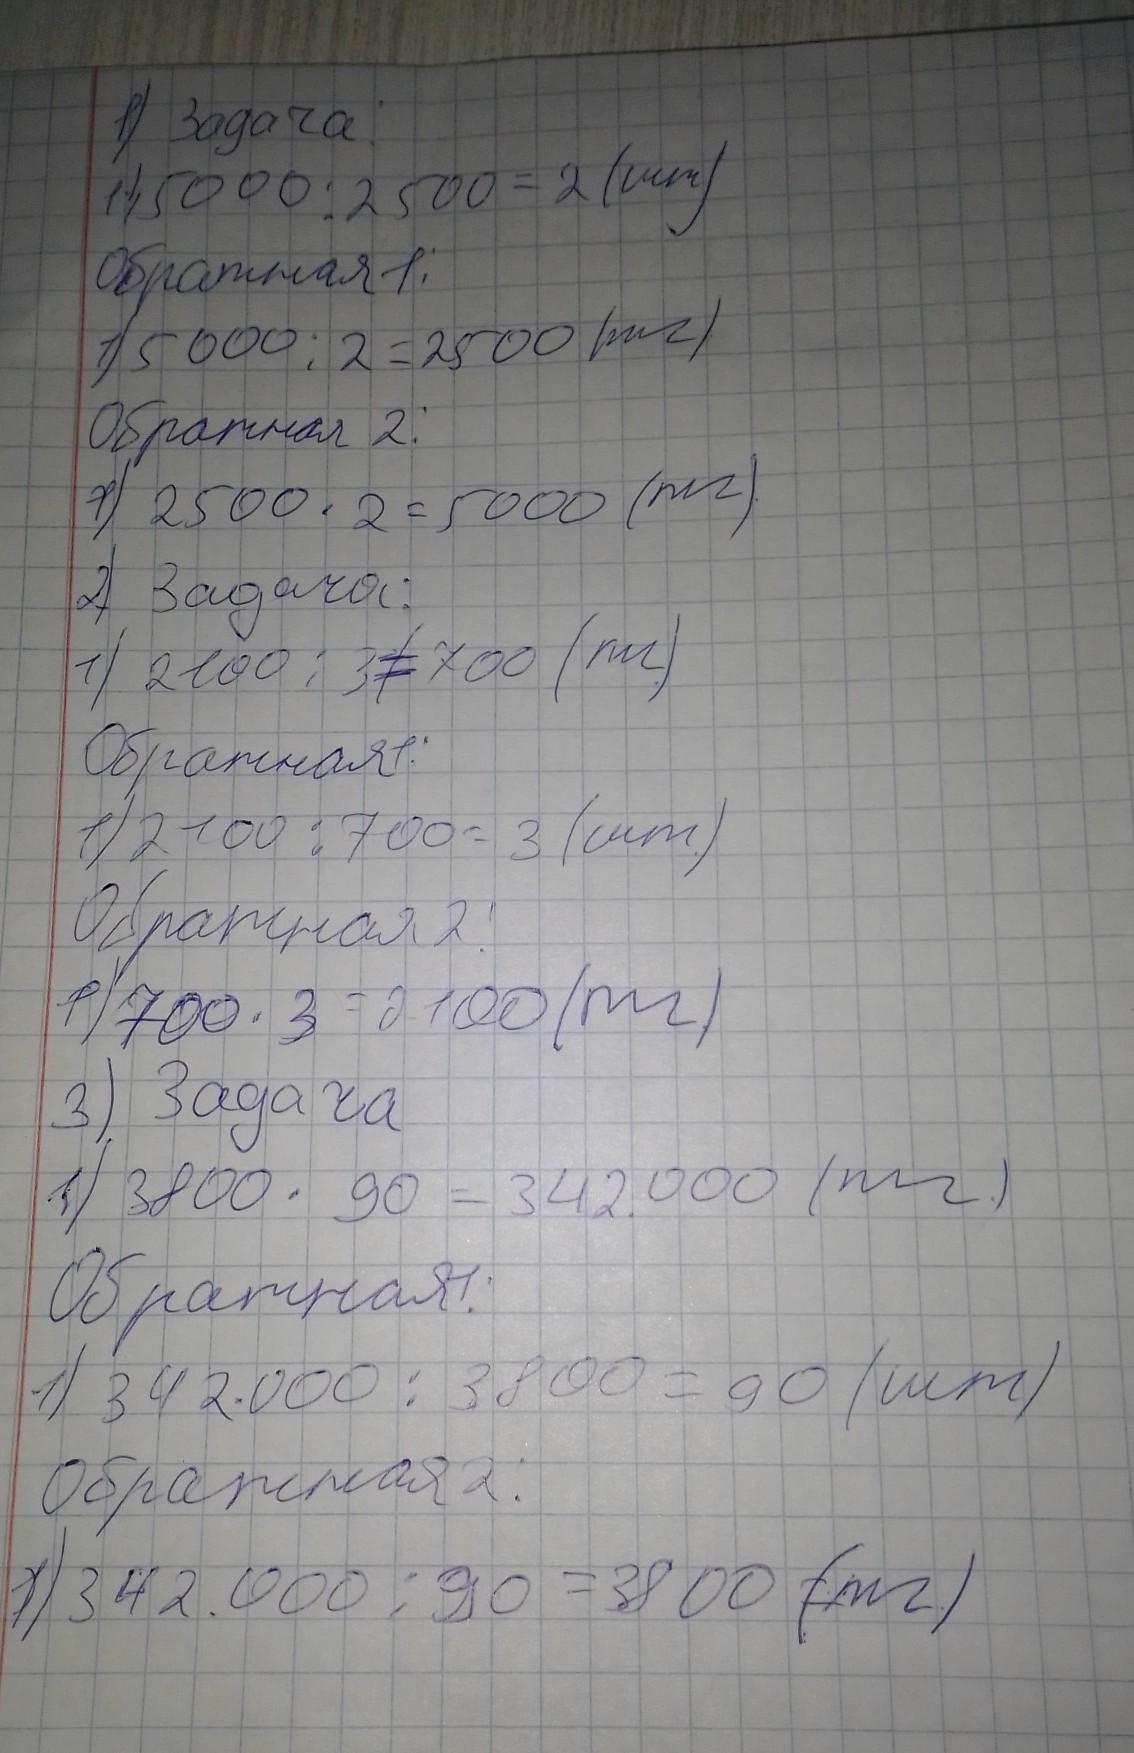 1) Задача:
1) 5000 : 2500 = 2 (шт)
Обратная 1:
1) 5000 : 2 = 2500 (тг)
Обратная 2:
1) 2500 · 2 = 5000 (тг)
2) Задача:
1) 2100 : 3 = 700 (тг)
Обратная 1:
1) 2100 : 700 = 3 (шт)
Обратная 2:
1) 700 · 3 = 2100 (тг)
3) Задача
1) 3800 · 90 = 342.000 (тг.)
Обратная 1:
1) 342.000 : 3800 = 90 (шт)
Обратная 2:
1) 342.000 : 90 = 3800 (тг)